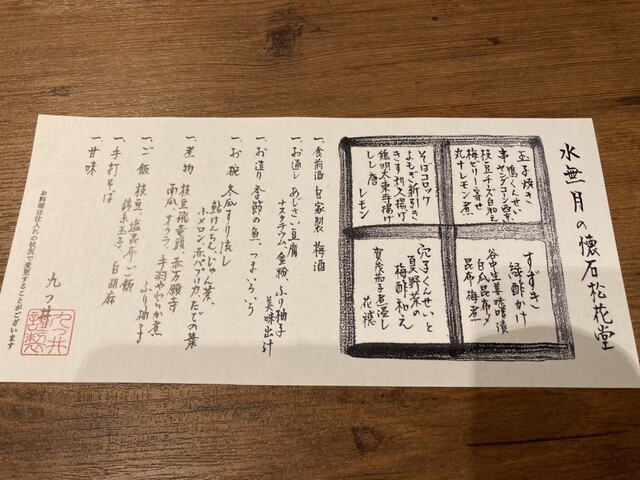 水無月の懐石松花堂
玉子焼き
鴨くんせい
串ヤングコーン西京
枝豆チーズ白和え
梅ゼリー寄せ
丸十レモン煮
すずき
緑酢かけ
谷中生姜味噌漬
白瓜昆布〆
昆布梅煮
そばコロッケ
よもぎ新引き
きす利久揚げ
雄明太東寺揚げ
しし唐 レモン
穴子くんせいと
夏野菜の
梅酢和え
賀茂茄子煮浸し
花穂
一、食前酒 自家製 梅酒
一、お通し あじさい豆腐
ナスタチウム、金粉、ふり柚子
美味出汁
一、お造り 季節の魚、つまいろいろ
一、お椀 冬瓜すり流し
鮎けんちん、じゅん菜、
小メロン、赤パプリカ、たでの葉
一、煮物 枝豆飛竜頭 赤万願寺
南瓜、オクラ、手羽やわらか煮
ふり柚子
一、ご飯 枝豆、塩昆布ご飯
錦糸玉子、白胡麻
一、手打そば
一、甘味
九つ井
お料理は仕入れの状況で変更することがございます